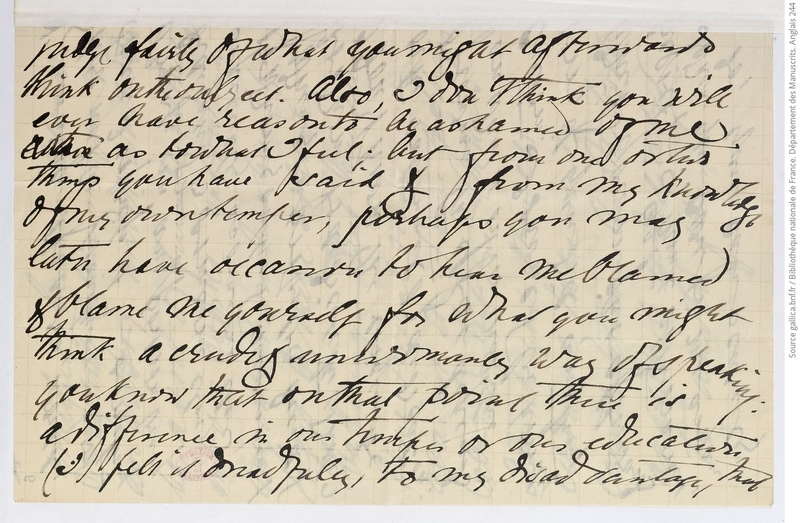 judge fairly of what you might afterwards
think on the subject. Also, I don't think you will
ever have reason to be ashamed of me
as to what I feel. but from one or two
things you have said & from my knowledge
of my own temper, perhaps you may
later have occasion to hear me blamed
& blame me yourself for what you might
think a crude & unwomanly way of speaking.
you know that on that point there is
a difference in our tempers or our education
(I) felt it dreadfully, to my disadvantage, that
Source gallica.bnf.fr / Bibliothèque nationale de France. Département des Manuscrits. Anglais 244